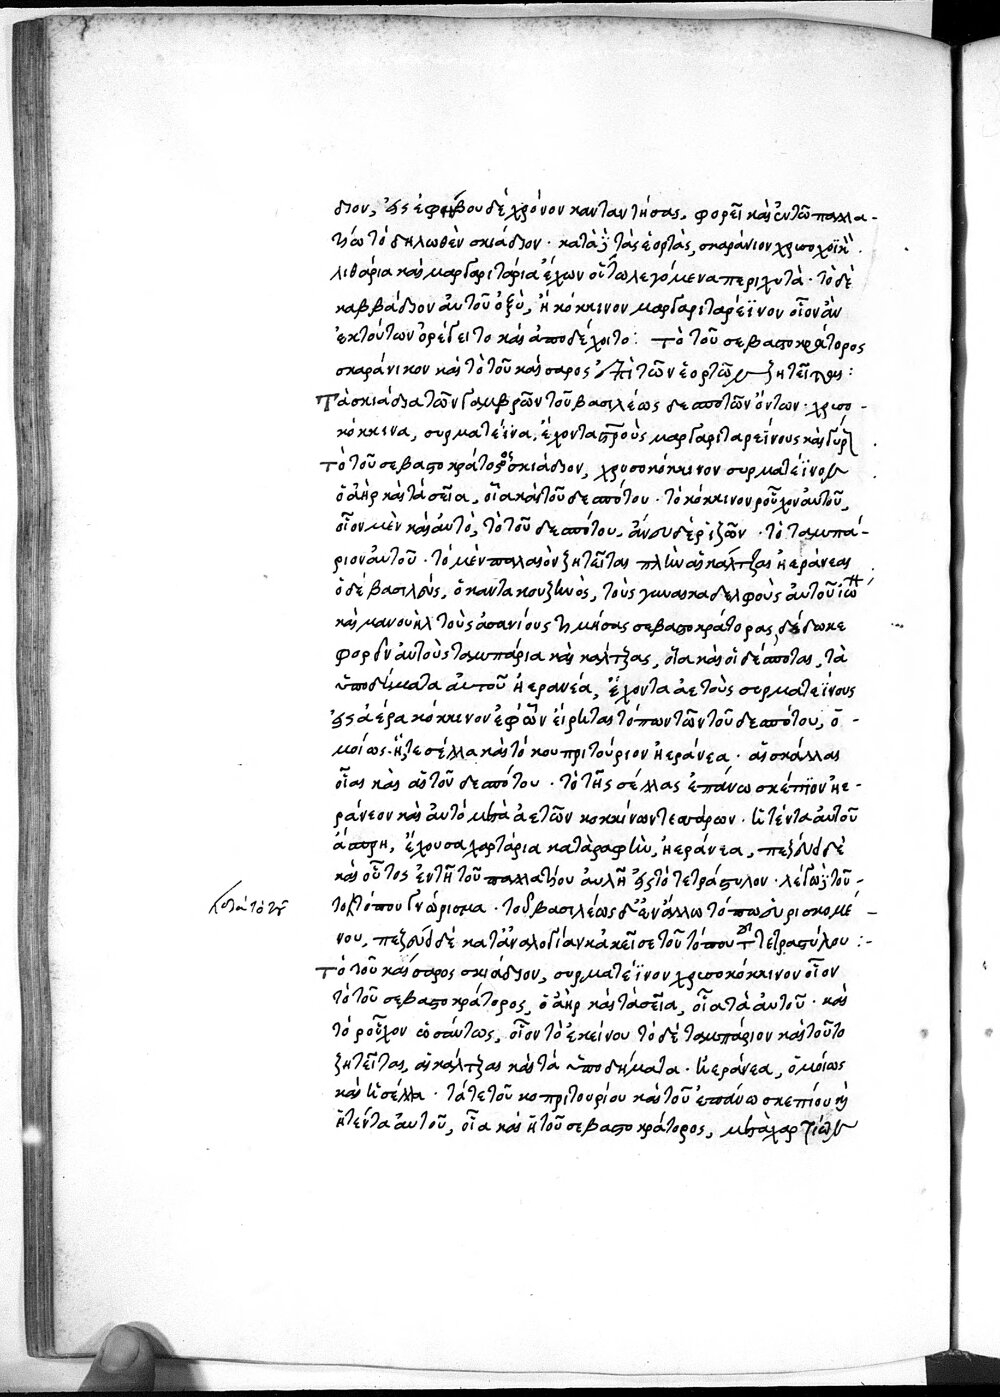 διον, εἰς ἐφήβου δὲ χρόνον καταντήσας, φορεῖ καὶ ἐν τῶ παλλα-
τίω τὸ δηλωθὲν σκιάδιον· κατὰ δὲ τὰς ἑορτὰς, σκαράνικον χρυσοχοϊκὰ
λιθάρια καὶ μαργαριτάρια ἔχων οὕτω λεγόμενα περιχυτά· τὸ δὲ
καββάδιον αὐτοῦ ὀξὺ, ἢ κόκκινον μαργαριταρέϊνον οἷον ἂν
ἐκ τούτων ὀρέγειτο καὶ ἀποδέχοιτο: τὸ τοῦ σεβαστοκράτορος
σκαράνικον καὶ τὸ τοῦ καίσαρος ἐπὶ τῶν ἑορτῶν ζητεῖται:
Τὰ σκιάδια τῶν γαμβρῶν τοῦ βασιλέως δεσποτῶν ὄντων· χρυσο-
κόκκινα, συρματέϊνα, ἔχοντα μαργαριταρεΐνους καὶ
Τὸ τοῦ σεβαστοκράτορος σκιάδιον, χρυσοκόκκινον συρματέϊνον
ὁ ἀὴρ καὶ τὰ σεῖα, οἷα καὶ τοῦ δεσπότου· τὸ κόκκινον ροῦχον αὐτοῦ,
οἷον μὲν καὶ αὐτὸ, τὸ τοῦ δεσπότου, ἄνευ δὲ ριζῶν· τὸ ταμπά-
ριον αὐτοῦ· τὸ μὲν παλαιὸν ζητεῖται πλὴν αἱ κάλτζαι ἠεράνεαι
ὁ δὲ βασιλεὺς, ὁ καντακουζηνὸς, τοὺς γυναικαδελφοὺς αὐτοῦ ἰω
καὶ μανουὴλ τοὺς ἀσανίους τιμήσας σεβαστοκράτορας, δέδωκε
φορεῖν αὐτοὺς ταμπάρια καὶ κάλτζας, οἷα καὶ οἱ δεσπόται, τὰ
ὑποδήματα αὐτοῦ ἠερανέα, ἔχοντα ἀετοὺς συρματεΐνους
εἰς ἀέρα κόκκινον ἐφ' ὧν εἴρηται τόπων τῶν τοῦ δεσπότου, ὁ-
μοίως ἥ τε σέλλα καὶ τὸ κουπριτούριον ἠεράνεα· αἱ σκάλλαι
οἷαι καὶ αἱ τοῦ δεσπότου· τὸ τῆς σέλλας ἐπάνω σκέπϊον ἠε-
ράνεον καὶ αὐτὸ μετὰ ἀετῶν κοκκίνων τεσσάρων· ἡ τέντα αὐτοῦ
ἄσπρη, ἔχουσα χαρτάρια κατὰ ραφὴν, ἠεράνεα, πεζεύει δὲ
καὶ οὗτος ἐν τῆ τοῦ παλλατίου αὐλῆ εἰς τὸ τετράπυλον· λέγω δὲ τοῦ-
το κατὰ τὸ τοῦ τόπου γνώρισμα· τοῦ βασιλέως δ' ἐν ἄλλω τόπω εὑρισκομέ-
νου, πεζεύει δὲ κατ' ἀναλογίαν κἀκεῖσε τοῦ τόπου τοῦ τετραπύλου:-
Τὸ τοῦ καίσαρος σκιάδιον, συρματέϊνον χρυσοκόκκινον οἷον
τὸ τοῦ σεβαστοκράτορος, ὁ ἀὴρ καὶ τὰ σεῖα, οἷα τὰ αὐτοῦ· καὶ
τὸ ροῦχον ὡσαύτως, οἷον τὸ ἐκείνου τὸ δὲ ταμπάριον καὶ τοῦτο
ζητεῖται, αἱ κάλτζαι καὶ τὰ ὑποδήματα· ἠεράνεα, ὁμοίως
καὶ ἡ σέλλα· τά τε τοῦ κοπριτουρίου καὶ τοῦ ἐπάνω σκεπίου καὶ
ἡ τέντα αὐτοῦ, οἷα καὶ ἡ τοῦ σεβαστοκράτορος, μετὰ χαρτίων